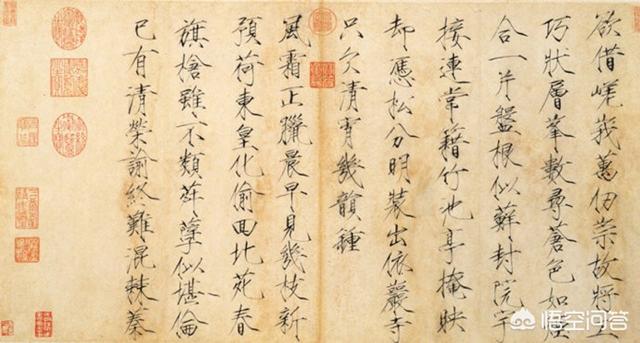 欲借嶢峩萬仞崇故將工
巧狀層峯數尋蒼色如煙
合一片盤根似蘚封院宇
接連常籍竹池亭掩映
却憑松分明裝出依巖寺
只欠清宵幾韻鍾
風霜正臘晨早見幾枝新
預荷東皇化偷回北苑春
旗槍雖不類荈孽似堪倫
已有清榮諭終難混棘蓁
悟空问答